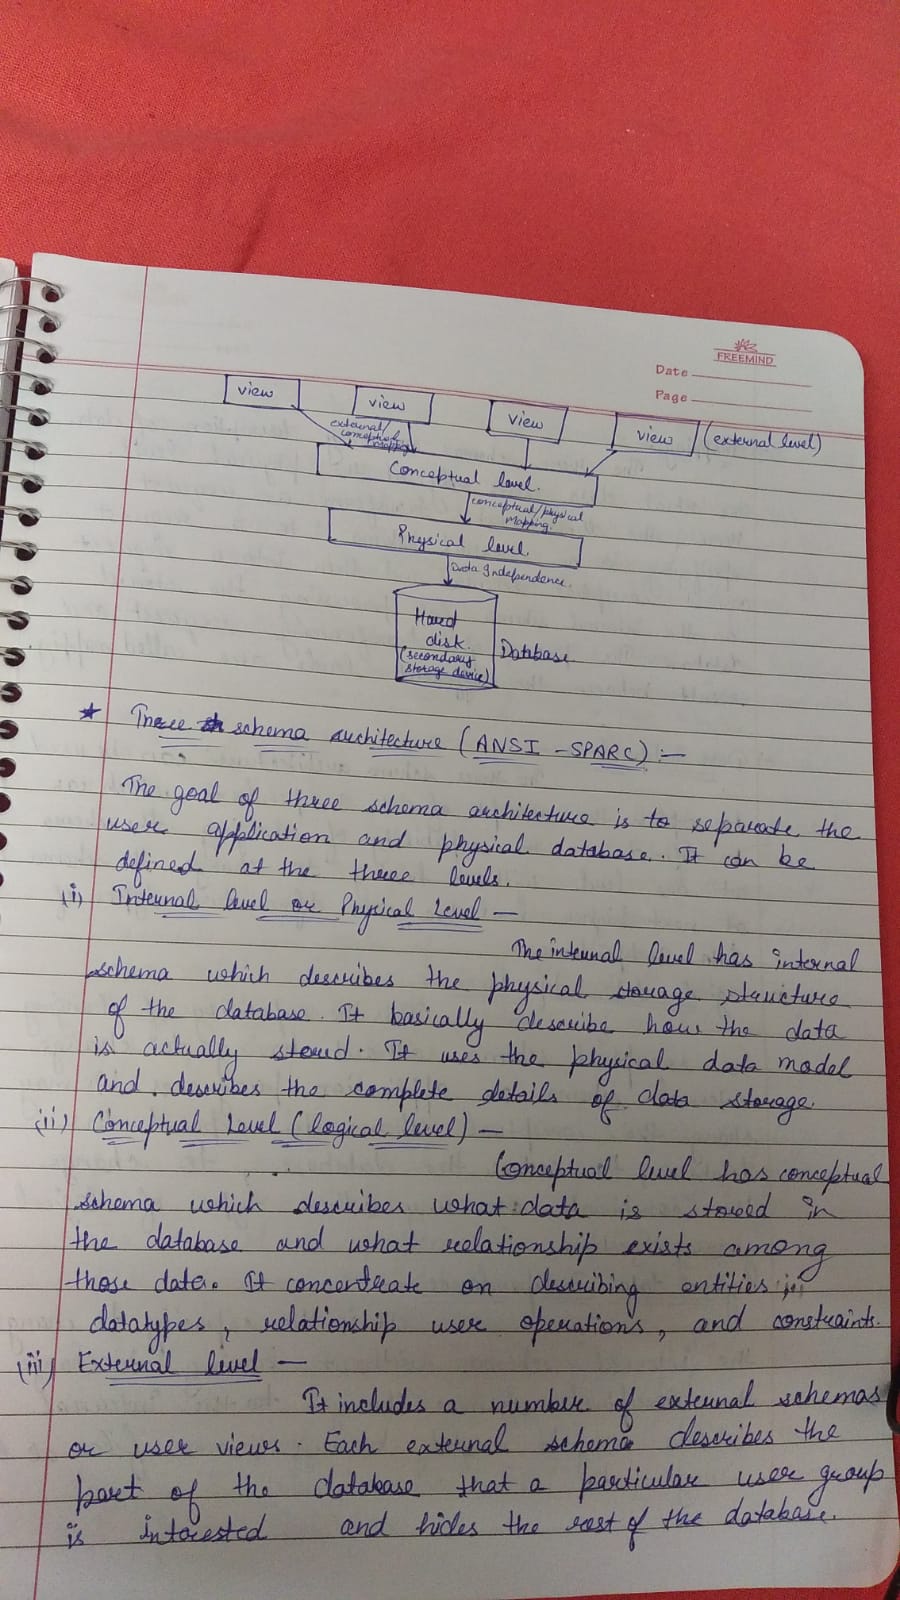 FREEMIND
Date
Page
view
view
view
view (external level)
external/
conceptual
mapping
Conceptual level.
conceptual/physical
Mapping.
Physical level.
Data Independence.
Hard
disk.
(secondary
storage device)
Database
★ Three schema architecture (ANSI-SPARC) :-
The goal of three schema architecture is to separate the
user application and physical database. It can be
defined at the three levels.
(i) Internal level or Physical Level —
The internal level has internal
schema which describes the physical storage structure
of the database. It basically describe how the data
is actually stored. It uses the physical data model
and describes the complete details of data storage.
(ii) Conceptual Level (logical level) —
Conceptual level has conceptual
schema which describes what data is stored in
the database and what relationship exists among
those data. It concentrate on describing entities,
datatypes, relationship user operations, and constraints.
(iii) External level —
It includes a number of external schemas
or user views. Each external schema describes the
part of the database that a particular user group
is interested and hides the rest of the database.